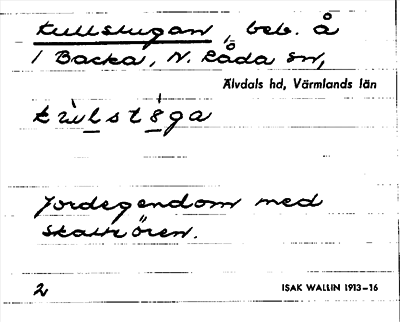 Kullstugan, beb. å
1 Backa, N. Råda sn,
Älvdals hd, Värmlands län
Jordegendom med
skatt ören.
2
ISAK WALLIN 1913–16